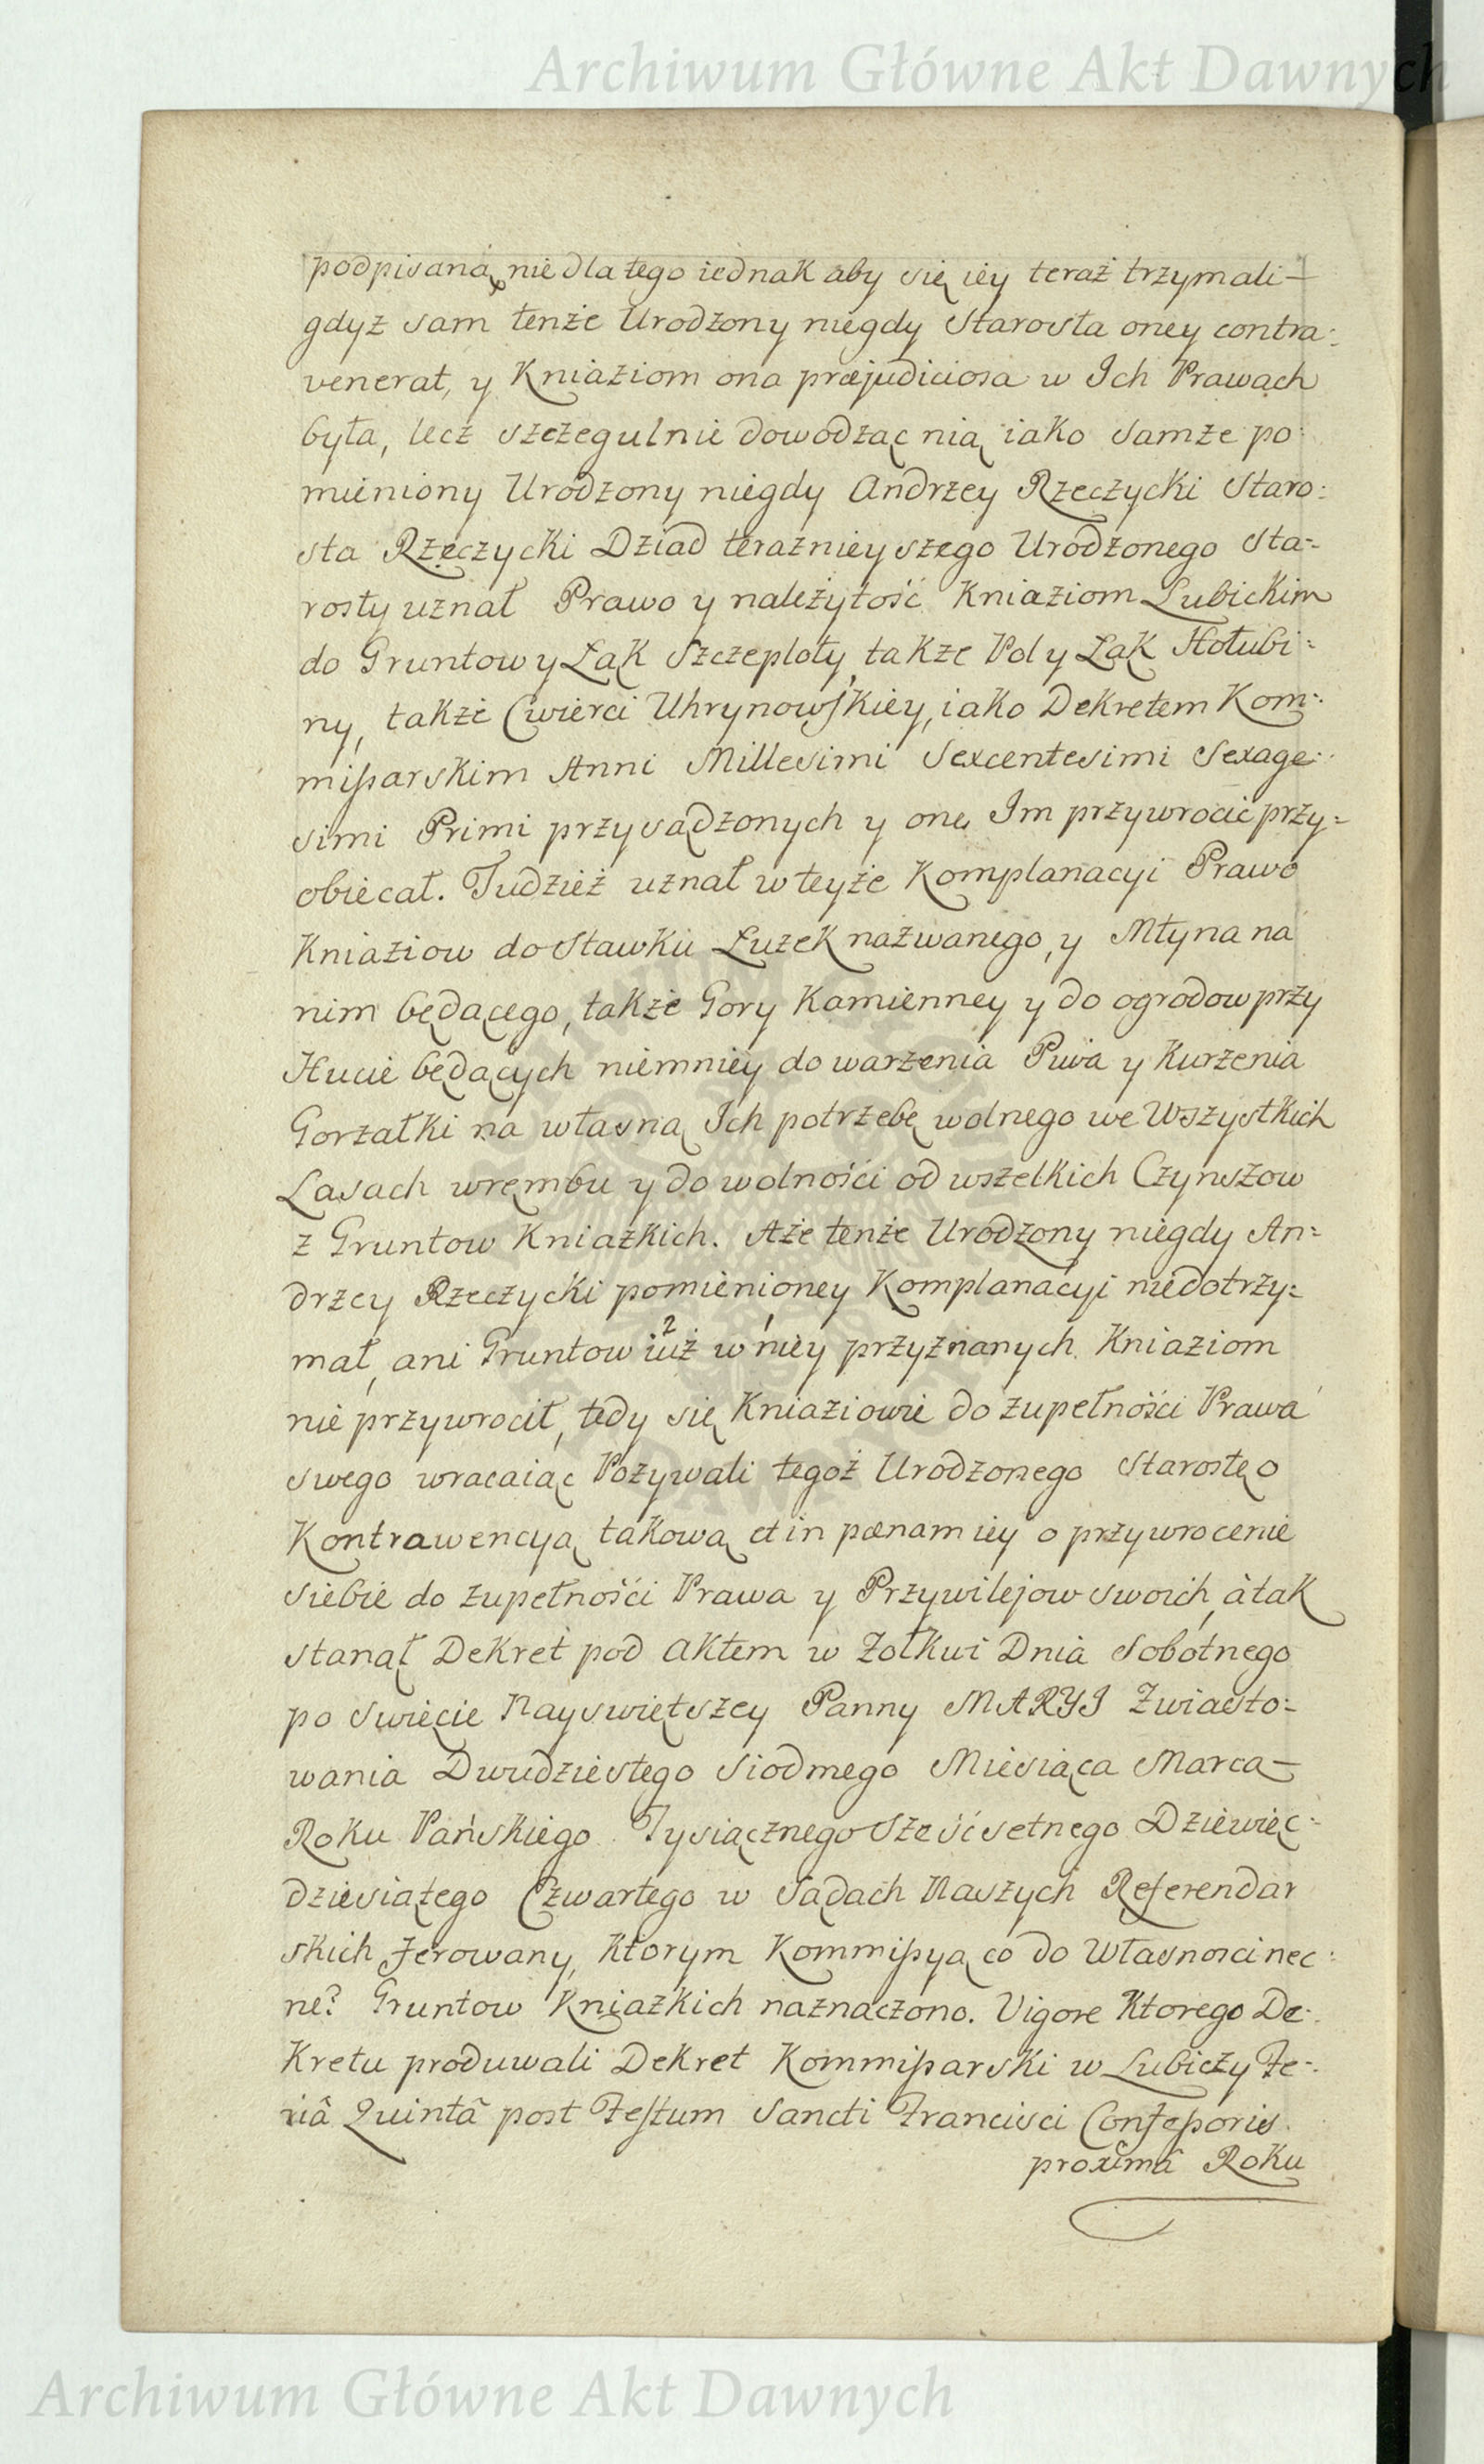 Archiwum Główne Akt Dawnych
podpisaną nie dla tego iednak aby się iey teraz trzymali –
gdyz sam tenże Urodzony niegdy Starosta oney contra:
venerat, y Kniaziom ona præjudiciosa w Ich Prawach
była, lecz szczegulnie dowodząc nią iako samże po
mieniony Urodzony niegdy Andrzey Rzeczycki Staro:
sta Rzeczycki Dziad teraznieyszego Urodzonego Sta=
rosty uznał Prawo y należytość Kniaziom Lubickim
do Gruntow y Łąk Szczeploty, także Pol y Łąk Hołubi:
ny, także Cwierci Uhrynowskiey, iako Dekretem Kom:
missarskim Anni Millesimi Sexcentesimi Sexage:
simi Primi przysądzonych y one Im przywrocić przy=
obiecał. Tudzież uznał w teyże Komplanacyi Prawo
Kniaziow do Stawku Łużek nazwanego, y Młyna na
nim będącego, także Gory Kamienney y do ogrodow przy
Hucie będących niemniey do warzenia Piwa y Kurzenia
Gorzałki na własną Ich potrzebę wolnego we Wszystkich
Lasach wrębu y do wolności od wszelkich Czynszow
z Gruntow Kniazkich. Aże tenże Urodzony niegdy An=
drzey Rzeczycki pomienioney Komplanacyi niedotrzy=
mał, ani Gruntow iuż w niey przyznanych Kniaziom
nie przywrocił, tedy się Kniaziowie do zupełności Prawa
swego wracaiąc Pozywali tegoż Urodzonego Starostę o
Kontrawencyą takową et in pœnam iey o przywrocenie
siebie do zupełności Prawa y Przywilejow swoich, à tak
stanął Dekret pod Aktem w Zołkwi Dnia Sobotnego
po Swięcie Nayswiętszey Panny MARYI Zwiasto=
wania Dwudziestego Siodmego Miesiąca Marca –
Roku Pańskiego Tysiącznego Sześćsetnego Dziewięć=
dziesiątego Czwartego w Sądach Naszych Referendar
skich ferowany, Ktorym Kommissyą co do Własnosci nec:
ne? Gruntow Kniazkich naznaczono. Vigore Ktorego De:
Kretu produwali Dekret Kommissarski w Lubiczy Fe=
riâ Quintâ post Festum Sancti Francisci Confessoris
proximâ Roku
Archiwum Główne Akt Dawnych